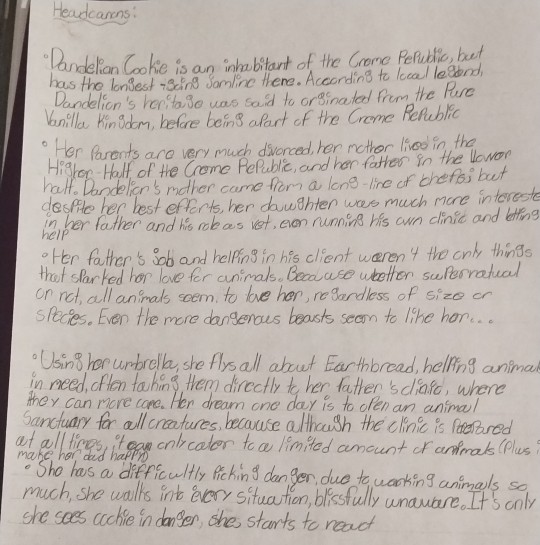 Headcanons:
• Dandelion Cookie is an inhabitant of the Creme Republic, but
has the longest-going famline there. According to local legend,
Dandelion's heritage was said to orginated from the Pure
Vanilla Kingdom, before being apart of the Creme Republic
• Her parents are very much divorced, her mother lived in the
Higher-Half of the Creme Republic, and her father in the lower
half. Dandelion's mother came from a long-line of chefs, but
despite her best efforts, her daughter was much more intereste
in her father and his rob as vet, even running his own clinic and letting
help
• Her father's job and helping in his client weren't the only things
that sparked her love for animals. Because whether supernatual
or not, all animals seem to love her, regardless of size or
species. Even the more dangerous beasts seem to like her...
• Using her umbrella, she flys all about Earthbread, helping animal
in need, often taking them directly to her father's clinic, where
they can more care. Her dream one day is to open an animal
Sanctuary for all creatures, because although the clinic is prepared
at all times, it can only cater to a limited amount of animals (Plus i
make her dad happy)
• She has a difficultly picking danger, due to working animals so
much, she walks into every situation, blissfully unaware. It's only
she sees cookie in danger, she starts to react